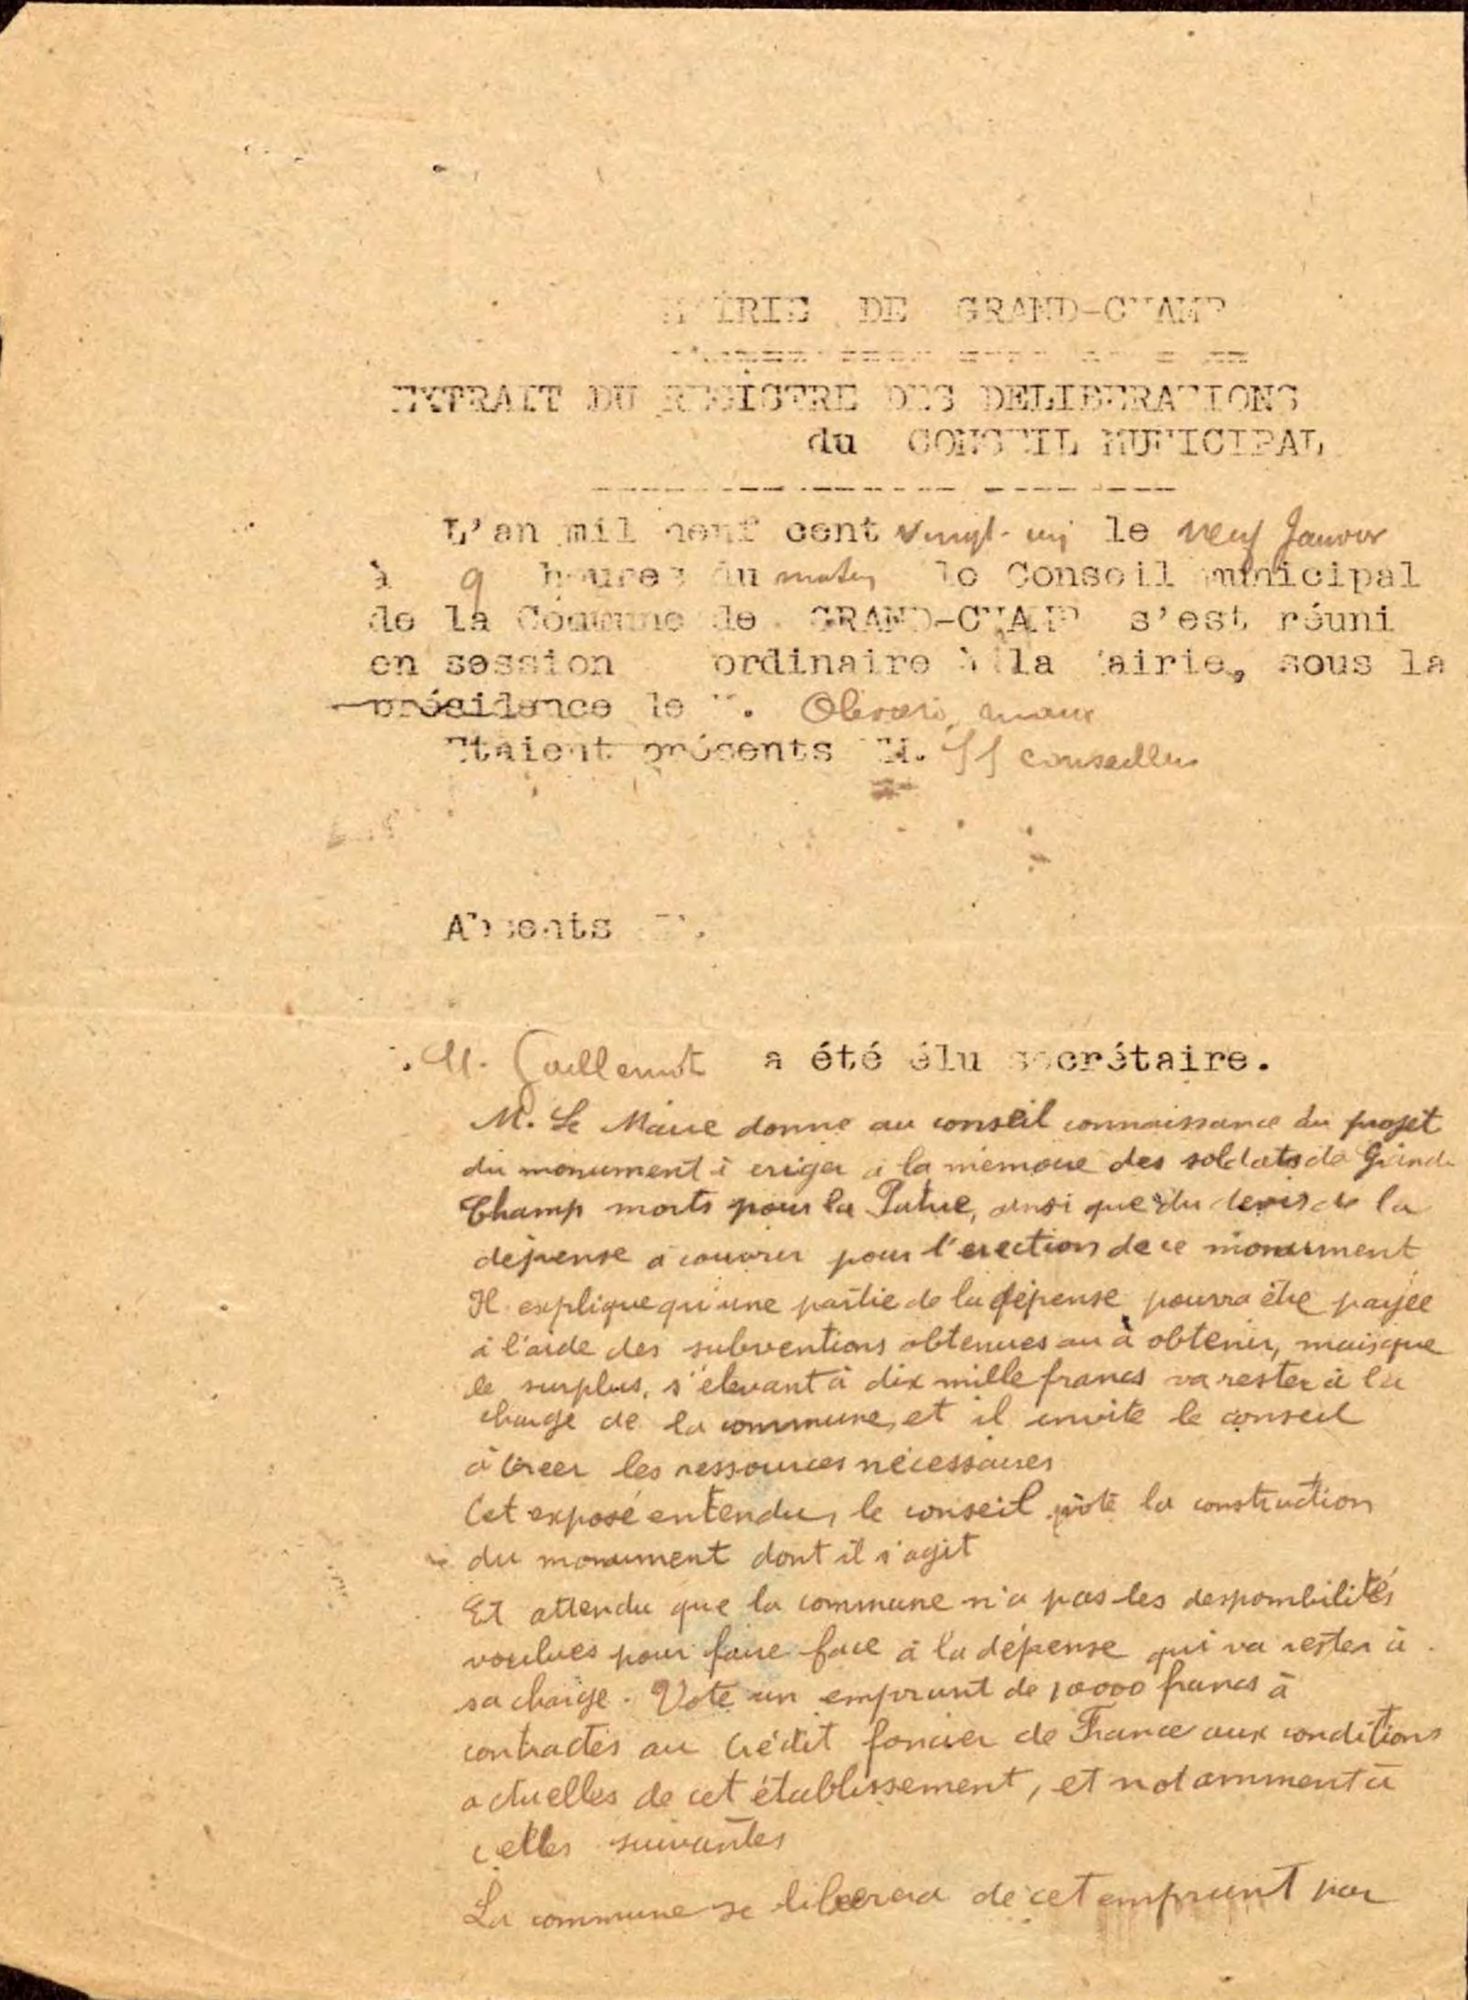 MAIRIE DE GRAND-CHAMP
EXTRAIT DU REGISTRE DES DELIBERATIONS
du CONSEIL MUNICIPAL
L'an mil neuf cent vingt-un le neuf Janvier
à 9 heures du matin le Conseil municipal
de la Commune de GRAND-CHAMP s'est réuni
en session ordinaire à la Mairie, sous la
présidence de M. maire
Etaient présents MM. conseillers
Absents MM.
M. a été élu secrétaire.
M. Le Maire donne au conseil connaissance du projet
du monument à eriger à la mémoire des soldats de Grand
Champ morts pour la Patrie, ainsi que du devis de la
dépense à couvrir pour l'erection de ce monument
Il explique qu'une partie de la dépense pourra être payée
à l'aide des subventions obtenues ou à obtenir, mais que
le surplus, s'élevant à dix mille francs va rester à la
charge de la commune, et il invite le conseil
à créer les ressources nécessaires
Cet exposé entendu, le conseil vote la construction
du monument dont il s'agit
Et attendu que la commune n'a pas les desponibilités
voulues pour faire face à la dépense qui va rester à
sa charge. Vote un emprunt de 10000 francs à
contracter au Crédit foncier de France aux conditions
actuelles de cet établissement, et notamment à
celles suivantes
La commune se liberera de cet emprunt par